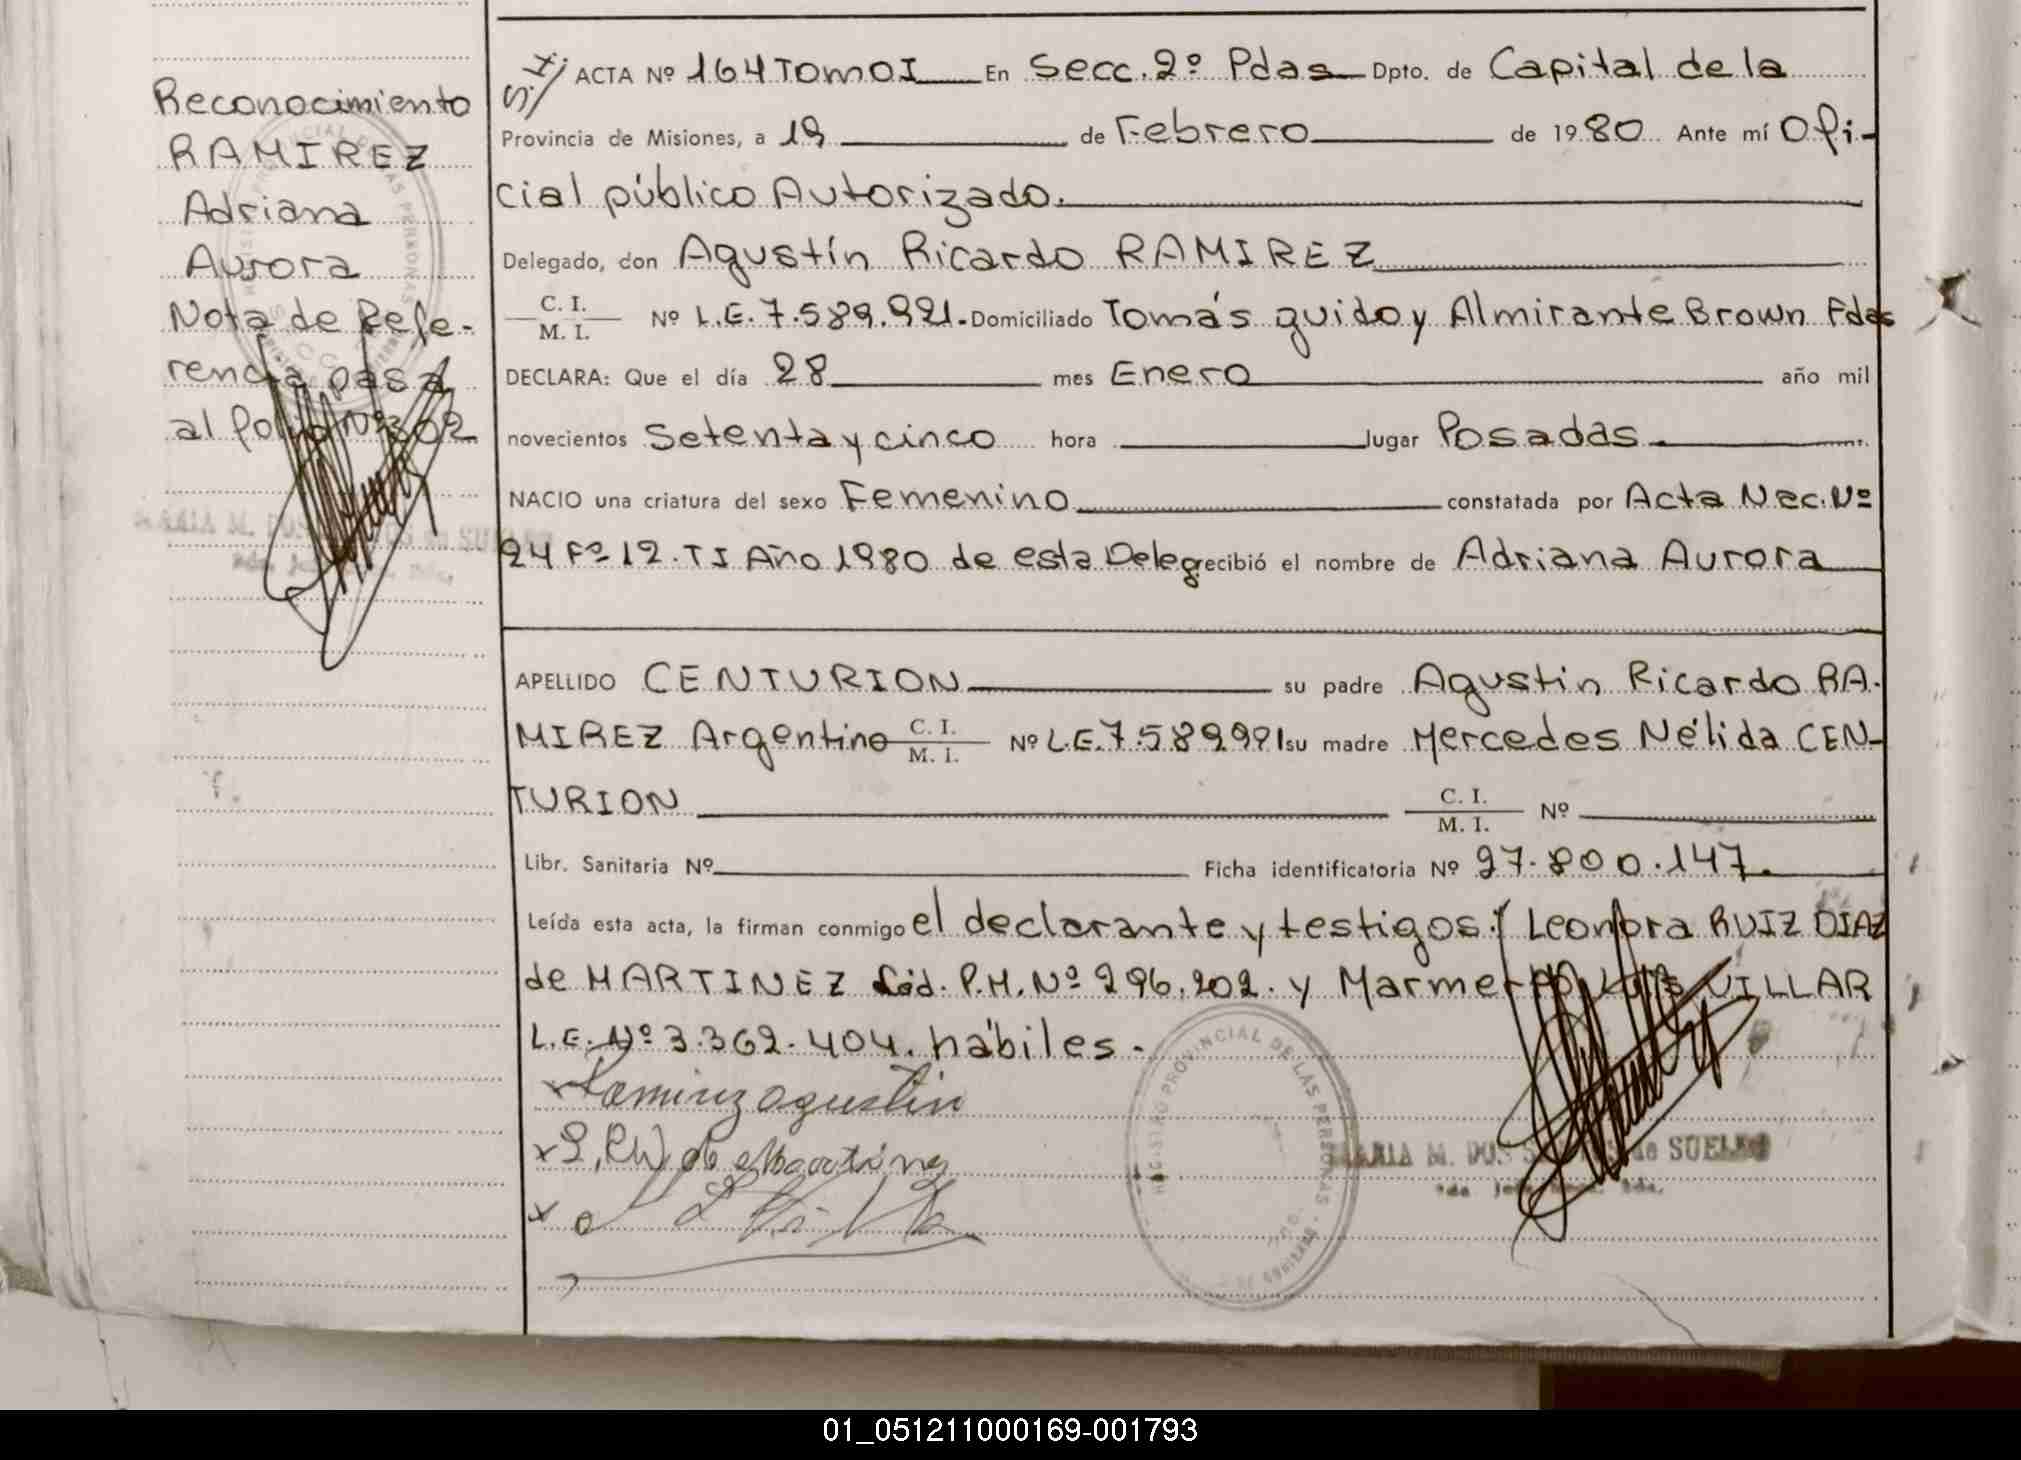 Reconocimiento
RAMIREZ
Adriana
Aurora
Nota de Refe-
rencia pasa
al folio Nº 302
S.I/ ACTA Nº 164 TOMO I En Secc. 2º Pdas Dpto. de Capital de la
Provincia de Misiones, a 19 de Febrero de 1980 Ante mí Ofi-
cial público Autorizado.
Delegado, don Agustín Ricardo RAMIREZ
C. I.
M. I. Nº L.E. 7.589.991. Domiciliado Tomás guido y Almirante Brown Pdas
DECLARA: Que el día 28 mes Enero año mil
novecientos Setenta y cinco hora lugar Posadas.
NACIO una criatura del sexo Femenino constatada por Acta Nac. Nº
24 Fº 12. TI Año 1980 de esta Deleg recibió el nombre de Adriana Aurora
APELLIDO CENTURION su padre Agustin Ricardo RA-
MIREZ Argentino C. I. M. I. Nº L.E. 7.589991 su madre Mercedes Nélida CEN-
TURION C. I. M. I. Nº
Libr. Sanitaria Nº Ficha identificatoria Nº 27.800.147.
Leída esta acta, la firman conmigo el declarante y testigos: Leonora RUIZ DIAZ
de MARTINEZ Céd. P.M. Nº 296.202. y Marmerto Luis VILLAR
L.E. Nº 3.362.404. hábiles.
x Ramirez agustin
REGISTRO PROVINCIAL DE LAS PERSONAS
MARIA M. DOS SANTOS de SUELDO
01_051211000169-001793